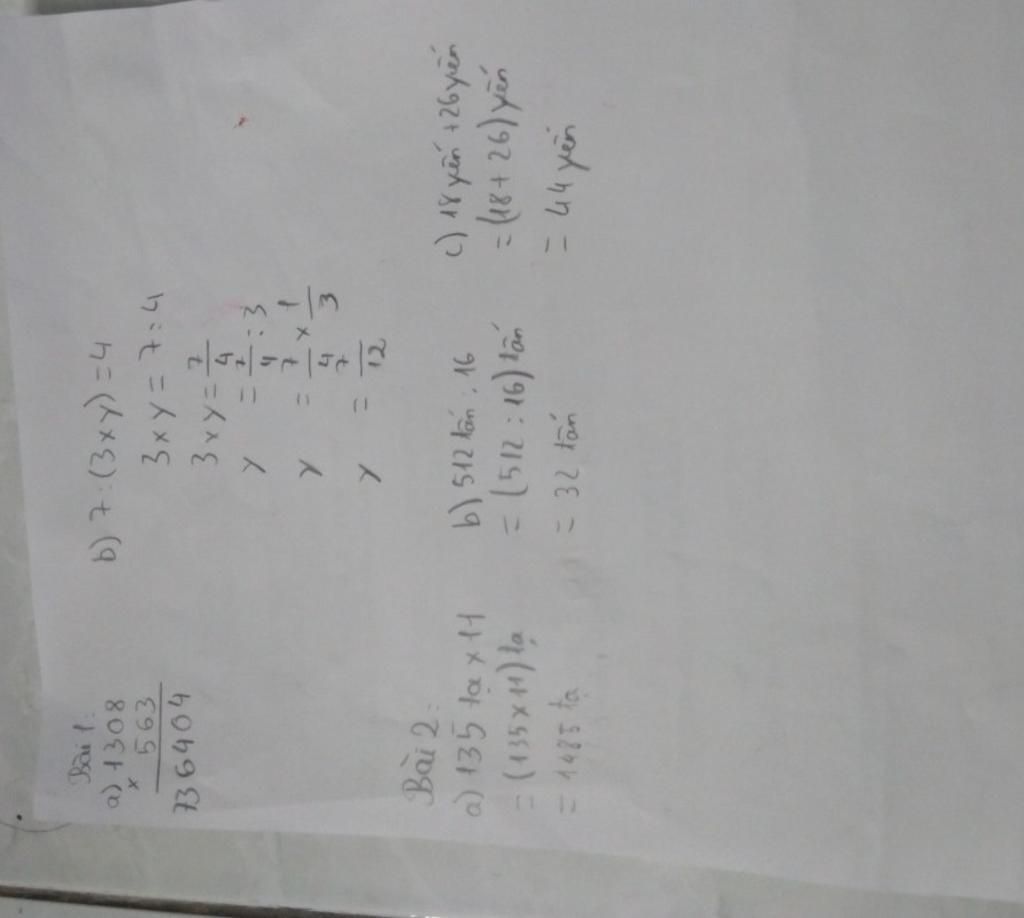 Bài 1:
a) 1308
× 563
736404
b) 7 : (3 × y) = 4
3 × y = 7 : 4
3 × y = 7/4
y = 7/4 : 3
y = 7/4 × 1/3
y = 7/12
Bài 2:
a) 135 tạ × 11
= (135 × 11) tạ
= 1485 tạ
b) 512 tấn : 16
= (512 : 16) tấn
= 32 tấn
c) 18 yến + 26 yến
= (18 + 26) yến
= 44 yến